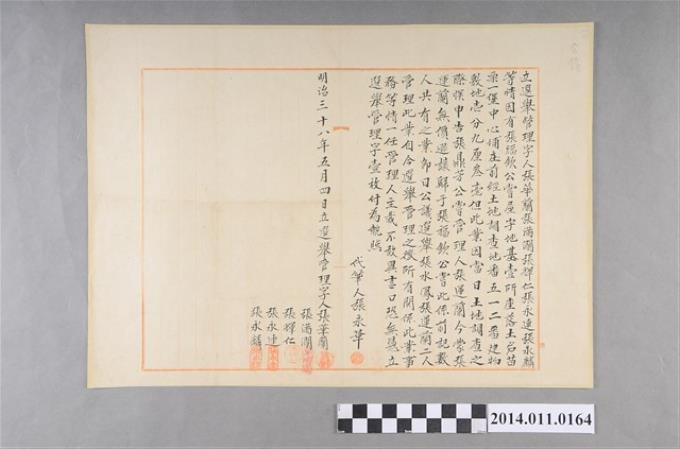 立選舉管理字人張華蘭張滿湖張輝仁張永連張永麟
等情因有張福欽公嘗屋宇地基壹所座落土名苗
栗一堡中心埔庄前經土地調查地番五一二番建物
敷地壹分九厘叁毫但此業因當日土地調查之
際悞申告張鼎芳公嘗管理人張運蘭今蒙張
運蘭無償還歸于張福欽公嘗此係前記數
人共有之業即日公議選舉張水鳳張運蘭二人
管理此業自合選舉管理之後所有關係此業事
務等情一任管理人主裁不敢異言口恐無憑立
選舉管理字壹枚付為執照
代筆人張永華
明治三十八年五月四日立選舉管理字人張華蘭
張滿湖
張輝仁
張永連
張永麟
2014.011.0164